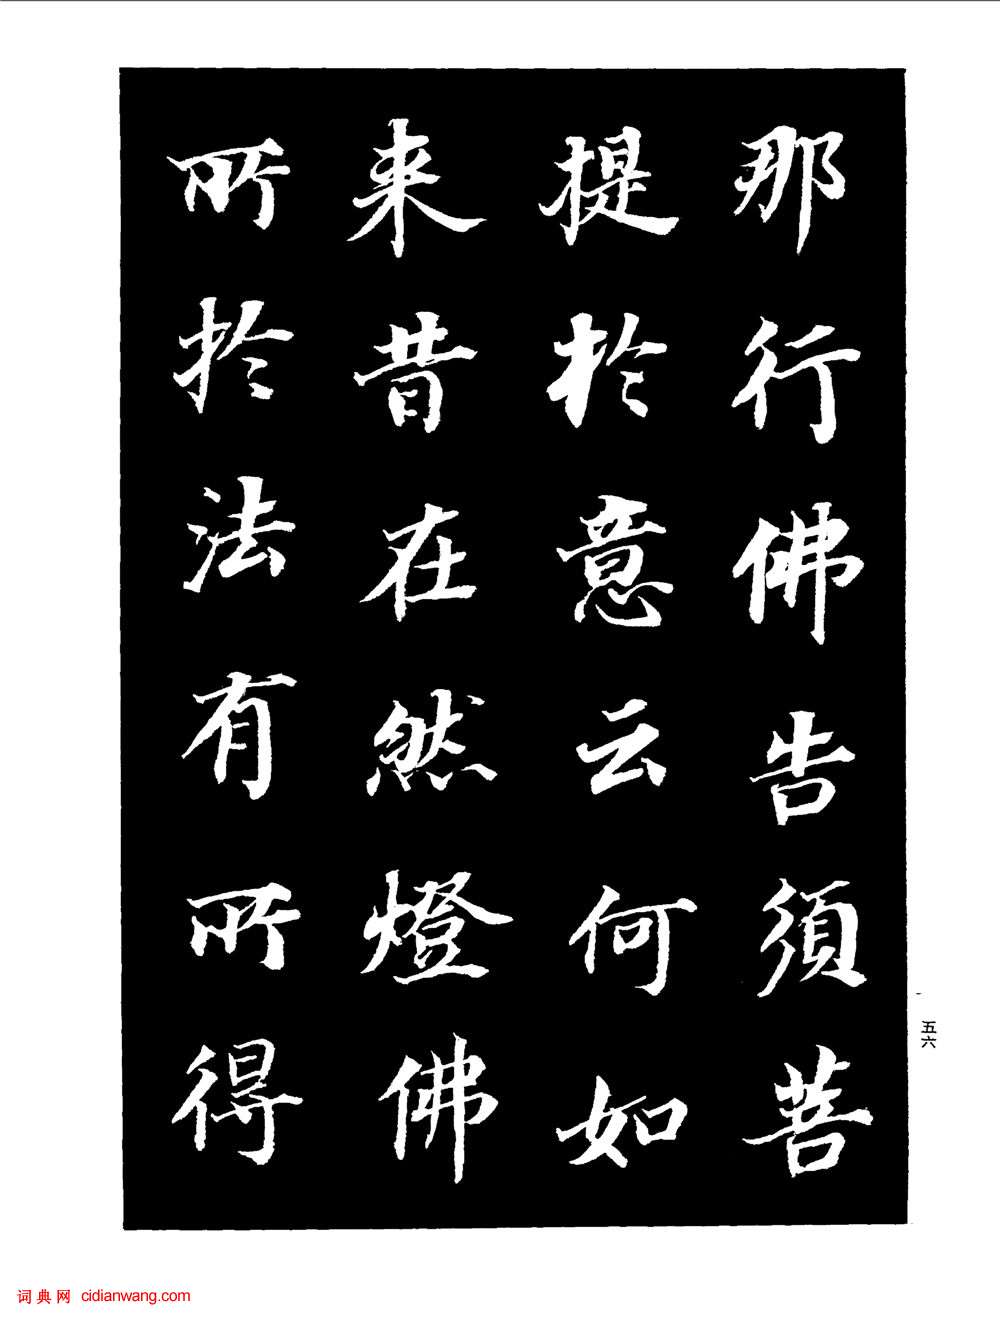 那行佛告須菩
提於意云何如
来昔在然燈佛
所於法有所得
五六
词典网 cidianwang.com